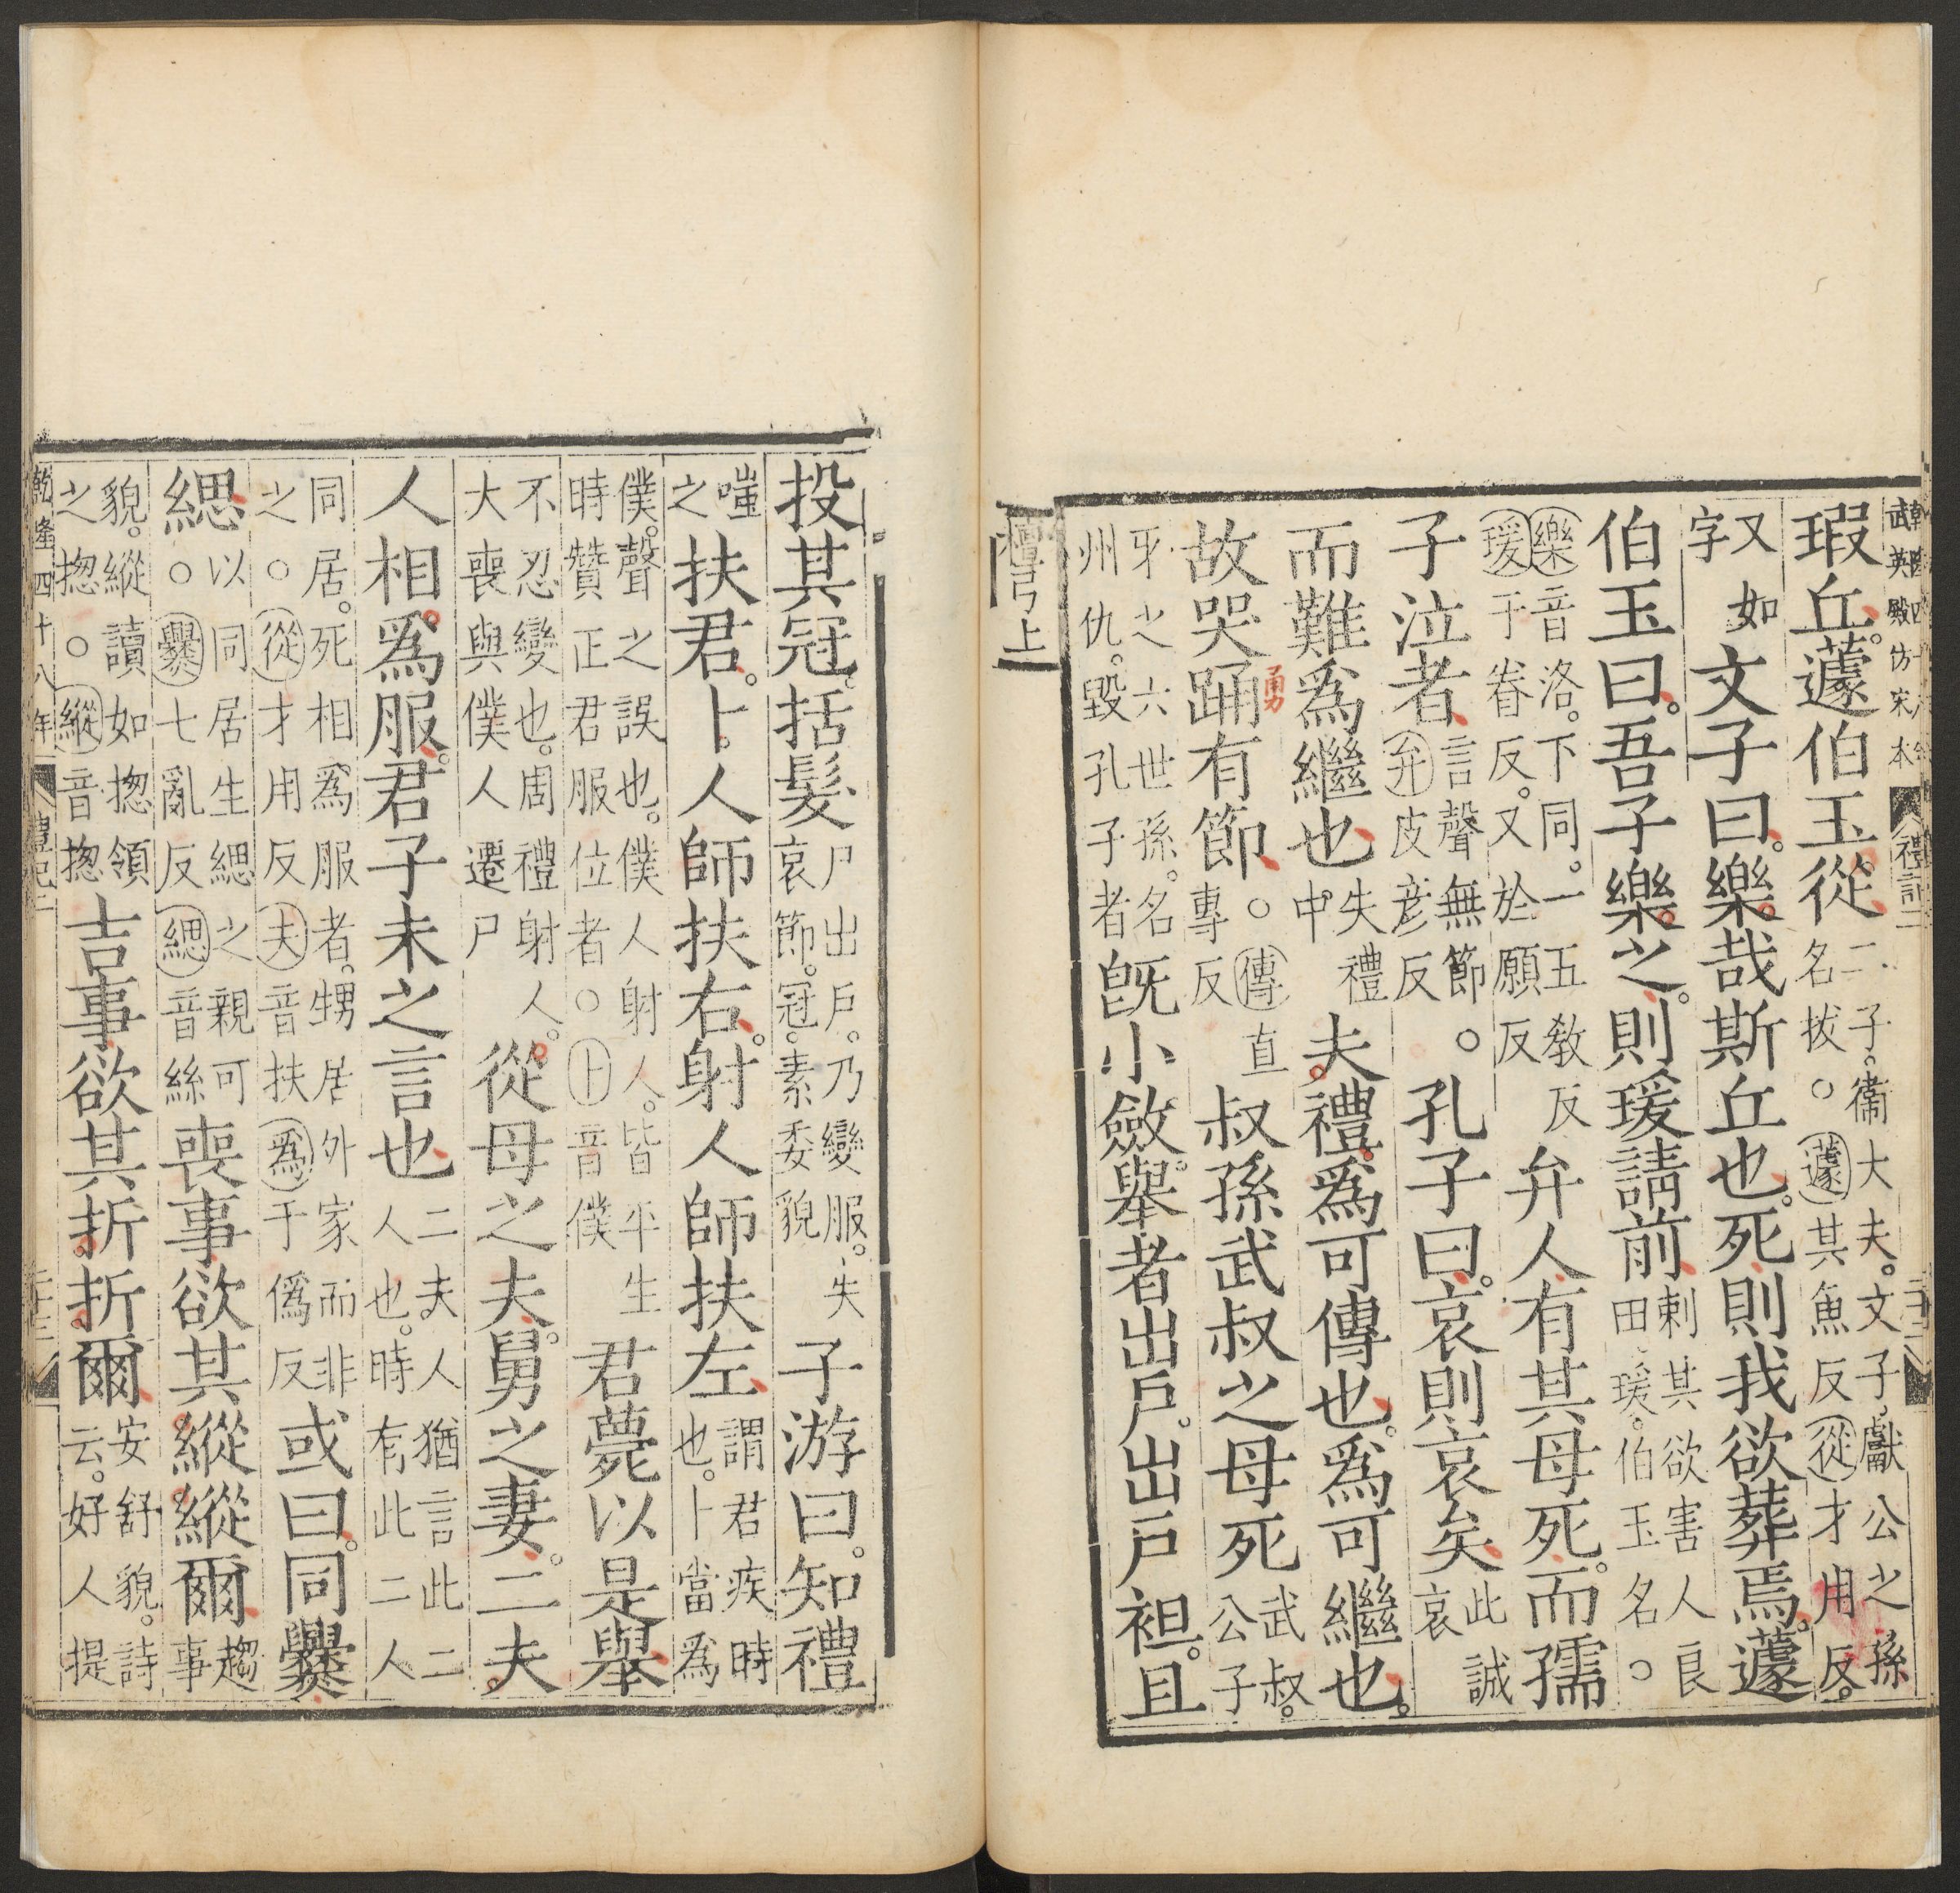 武英殿仿宋本 禮記二
瑕丘。蘧伯玉從二子。衞大夫。文子。獻公之孫名拔。○蘧其魚反從才用反。
又如字文子曰。樂哉斯丘也。死則我欲葬焉。蘧
伯玉曰。吾子樂之。則瑗請前刺其欲害人良田瑗。伯玉名。○
樂音洛。下同。一五敎反瑗于眷反。又於願反弁人有其母死。而孺
子泣者言聲無節弁皮彥反。孔子曰。哀則哀矣此誠哀
而難爲繼也失禮中。夫禮爲可傳也。爲可繼也。
故哭踊有節○傳直專反叔孫武叔之母死武叔。公子
牙之六世孫。名州仇。毀孔子者旣小斂。舉者出戶。出戶袒。且
檀弓上
投其冠。括髮尸出戶。乃變服。失哀節。冠。素委貌子游曰。知禮
嗤之扶君。卜人師扶右。射人師扶左謂君疾時也。卜當爲
僕。聲之誤也。僕人射人。皆平生時贊正君服位者。○卜音僕君薨以是舉
不忍變也。周禮射人。大喪與僕人遷尸從母之夫。舅之妻。二夫
人相爲服。君子未之言也二夫人猶言此二人也。時有此二人
同居。死相爲服者。甥居外家而非之。○從才用反夫音扶爲于僞反或曰。同爨
緦以同居生緦之親可○爨七亂反緦音絲喪事欲其縱縱爾趨事
貌。縱讀如揔領之揔。○縱音揔吉事欲其折折爾安舒貌。詩云。好人提
乾隆四十八年 禮記二